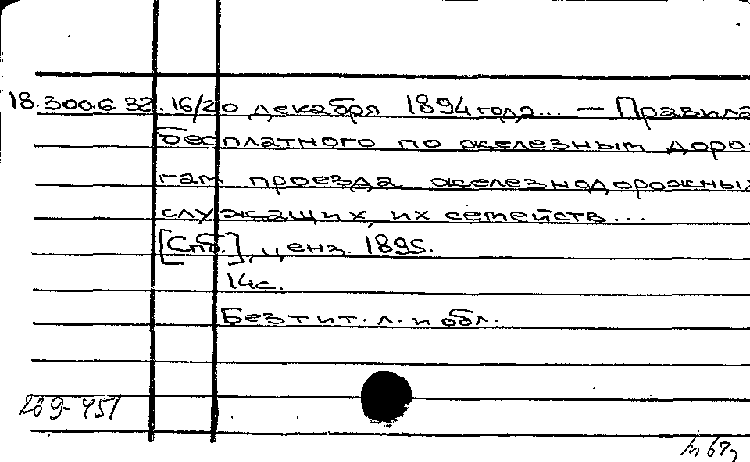 18.300.6.32. 16/20 декабря 1894 года... — Правила
бесплатного по железным доро-
гам проезда железнодорожных
служащих, их семейств...
[Спб.], ценз. 1895.
14с.
Без тит. л. и обл.
209-451